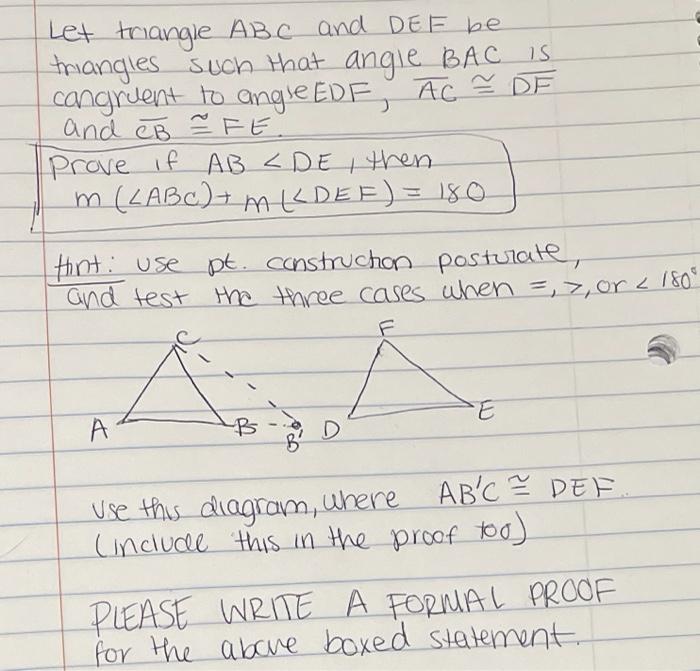 Let triangle ABC and DEF be
triangles such that angle BAC is
congruent to angle EDF, AC ≅ DF
and CB ≅ FE.
Prove if AB < DE, then
m(∠ABC) + m(∠DEF) = 180
Hint: use pt. construction posturate,
and test the three cases when =, >, or < 180°
C
F
A
B
B'
D
E
Use this diagram, where AB'C ≅ DEF.
(include this in the proof too)
PLEASE WRITE A FORMAL PROOF
for the above boxed statement.